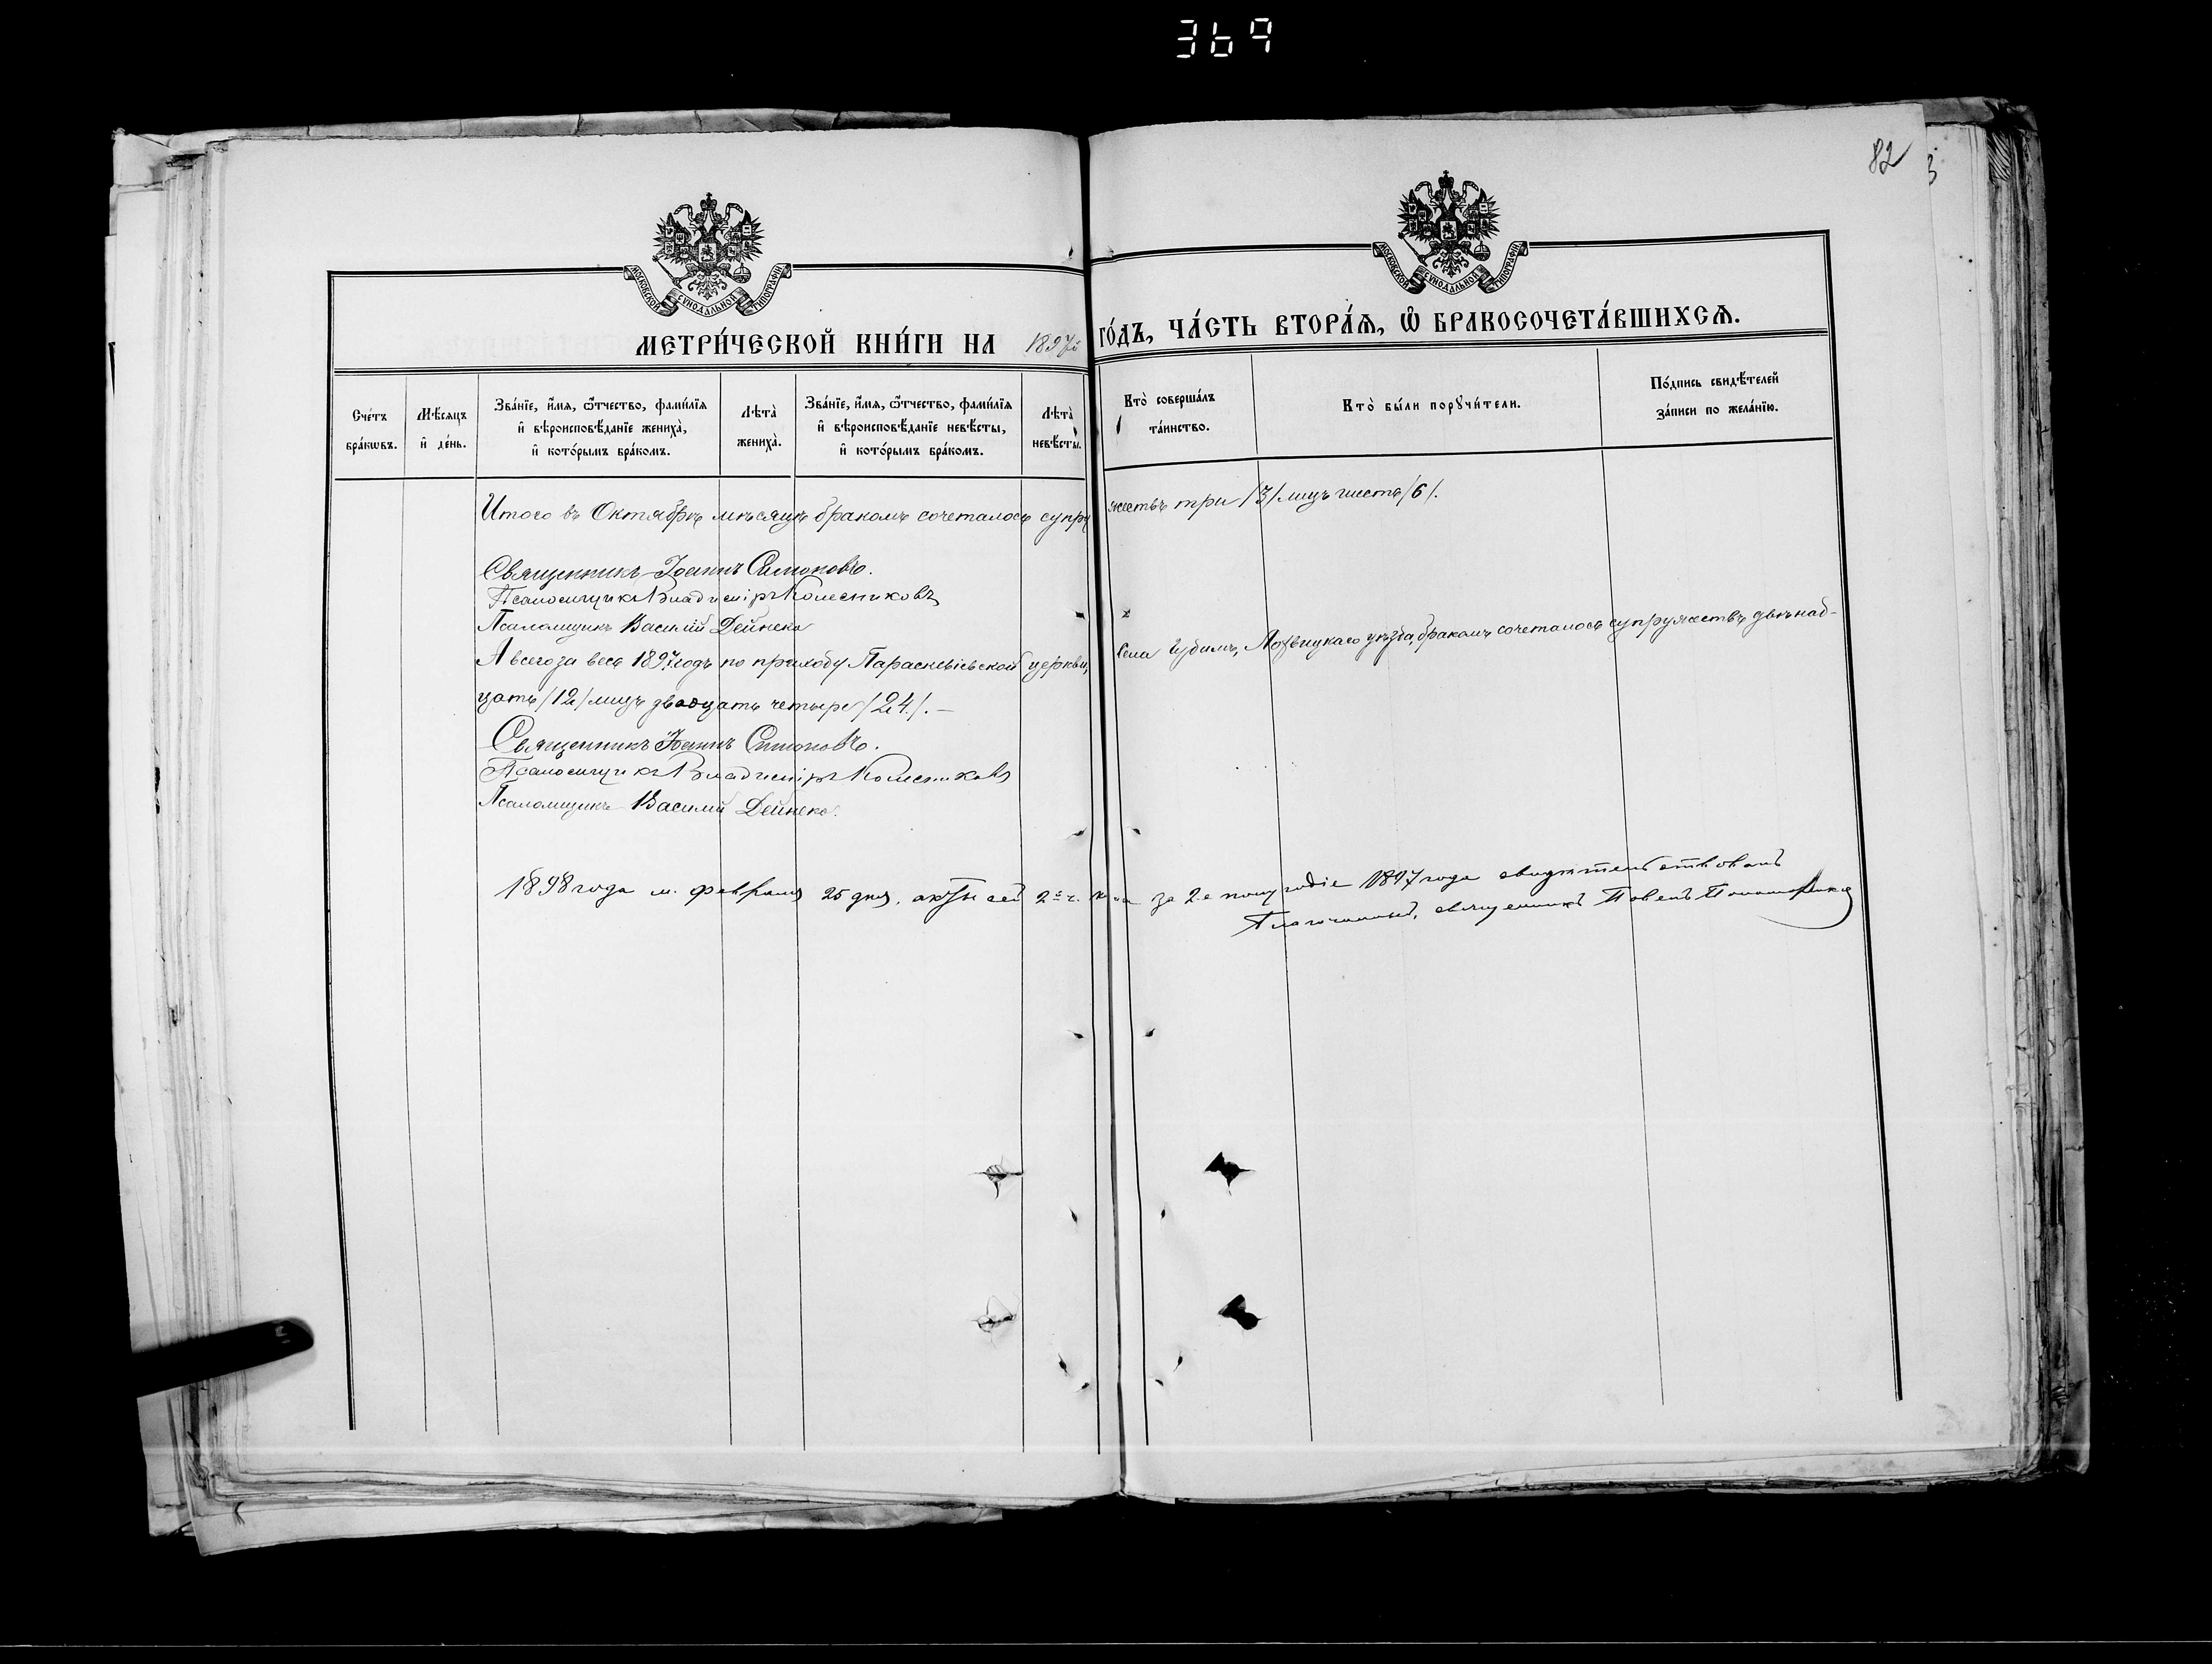 369
82
МОСКОВСКОЙ СУНОДАЛЬНОЙ ТИПОГРАФІИ
МОСКОВСКОЙ СУНОДАЛЬНОЙ ТИПОГРАФІИ
МЕТРИ́ЧЕСКОЙ КНИ́ГИ НА 1897й ГО́ДЪ, ЧА́СТЬ ВТОРА́Я, Ѽ БРАКОСОЧЕТА́ВШИХСЯ.
Сче́тъ
бра́кѡвъ.
Мѣ́сяцъ
и҆ де́нь.
Зва́нїе, и҆́мя, ѻ҆́тчество, фами́лїя
и҆ вѣроисповѣ́данїе жениха̀,
и҆ кото́рымъ бра́комъ.
Лѣта̀
жениха̀.
Зва́нїе, и҆́мя, ѻ҆́тчество, фами́лїя
и҆ вѣроисповѣ́данїе невѣ́сты,
и҆ кото́рымъ бра́комъ.
Лѣта̀
невѣ́сты.
Кто̀ соверша́лъ
та́инство.
Кто̀ бы́ли порꙋчи́тели.
По́дпись свидѣ́телей
за́писи по жела́нїю.
Итого въ Октябрѣ мѣсяцѣ бракомъ сочеталось супружествъ три /3/ лицъ шесть /6/.
Священникъ Іоаннъ Симоновъ.
Псаломщикъ Владиміръ Колесниковъ
Псаломщикъ Василій Дейнеко
А всего за весь 1897 годъ по приходу Параскевіевской церкви, села Чудинъ, Лохвицкаго уѣзда, бракомъ сочеталось супружествъ двѣнад-
цать /12/ лицъ двадцать четыре /24/.—
Священникъ Іоаннъ Симоновъ.
Псаломщикъ Владиміръ Колесниковъ
Псаломщикъ Василій Дейнеко.
1898 года м. февраля 25 дня, акты сей 2й ч. за 2-е полугодіе 1897 года свидѣтельствовалъ
Благочинный, священникъ Павелъ